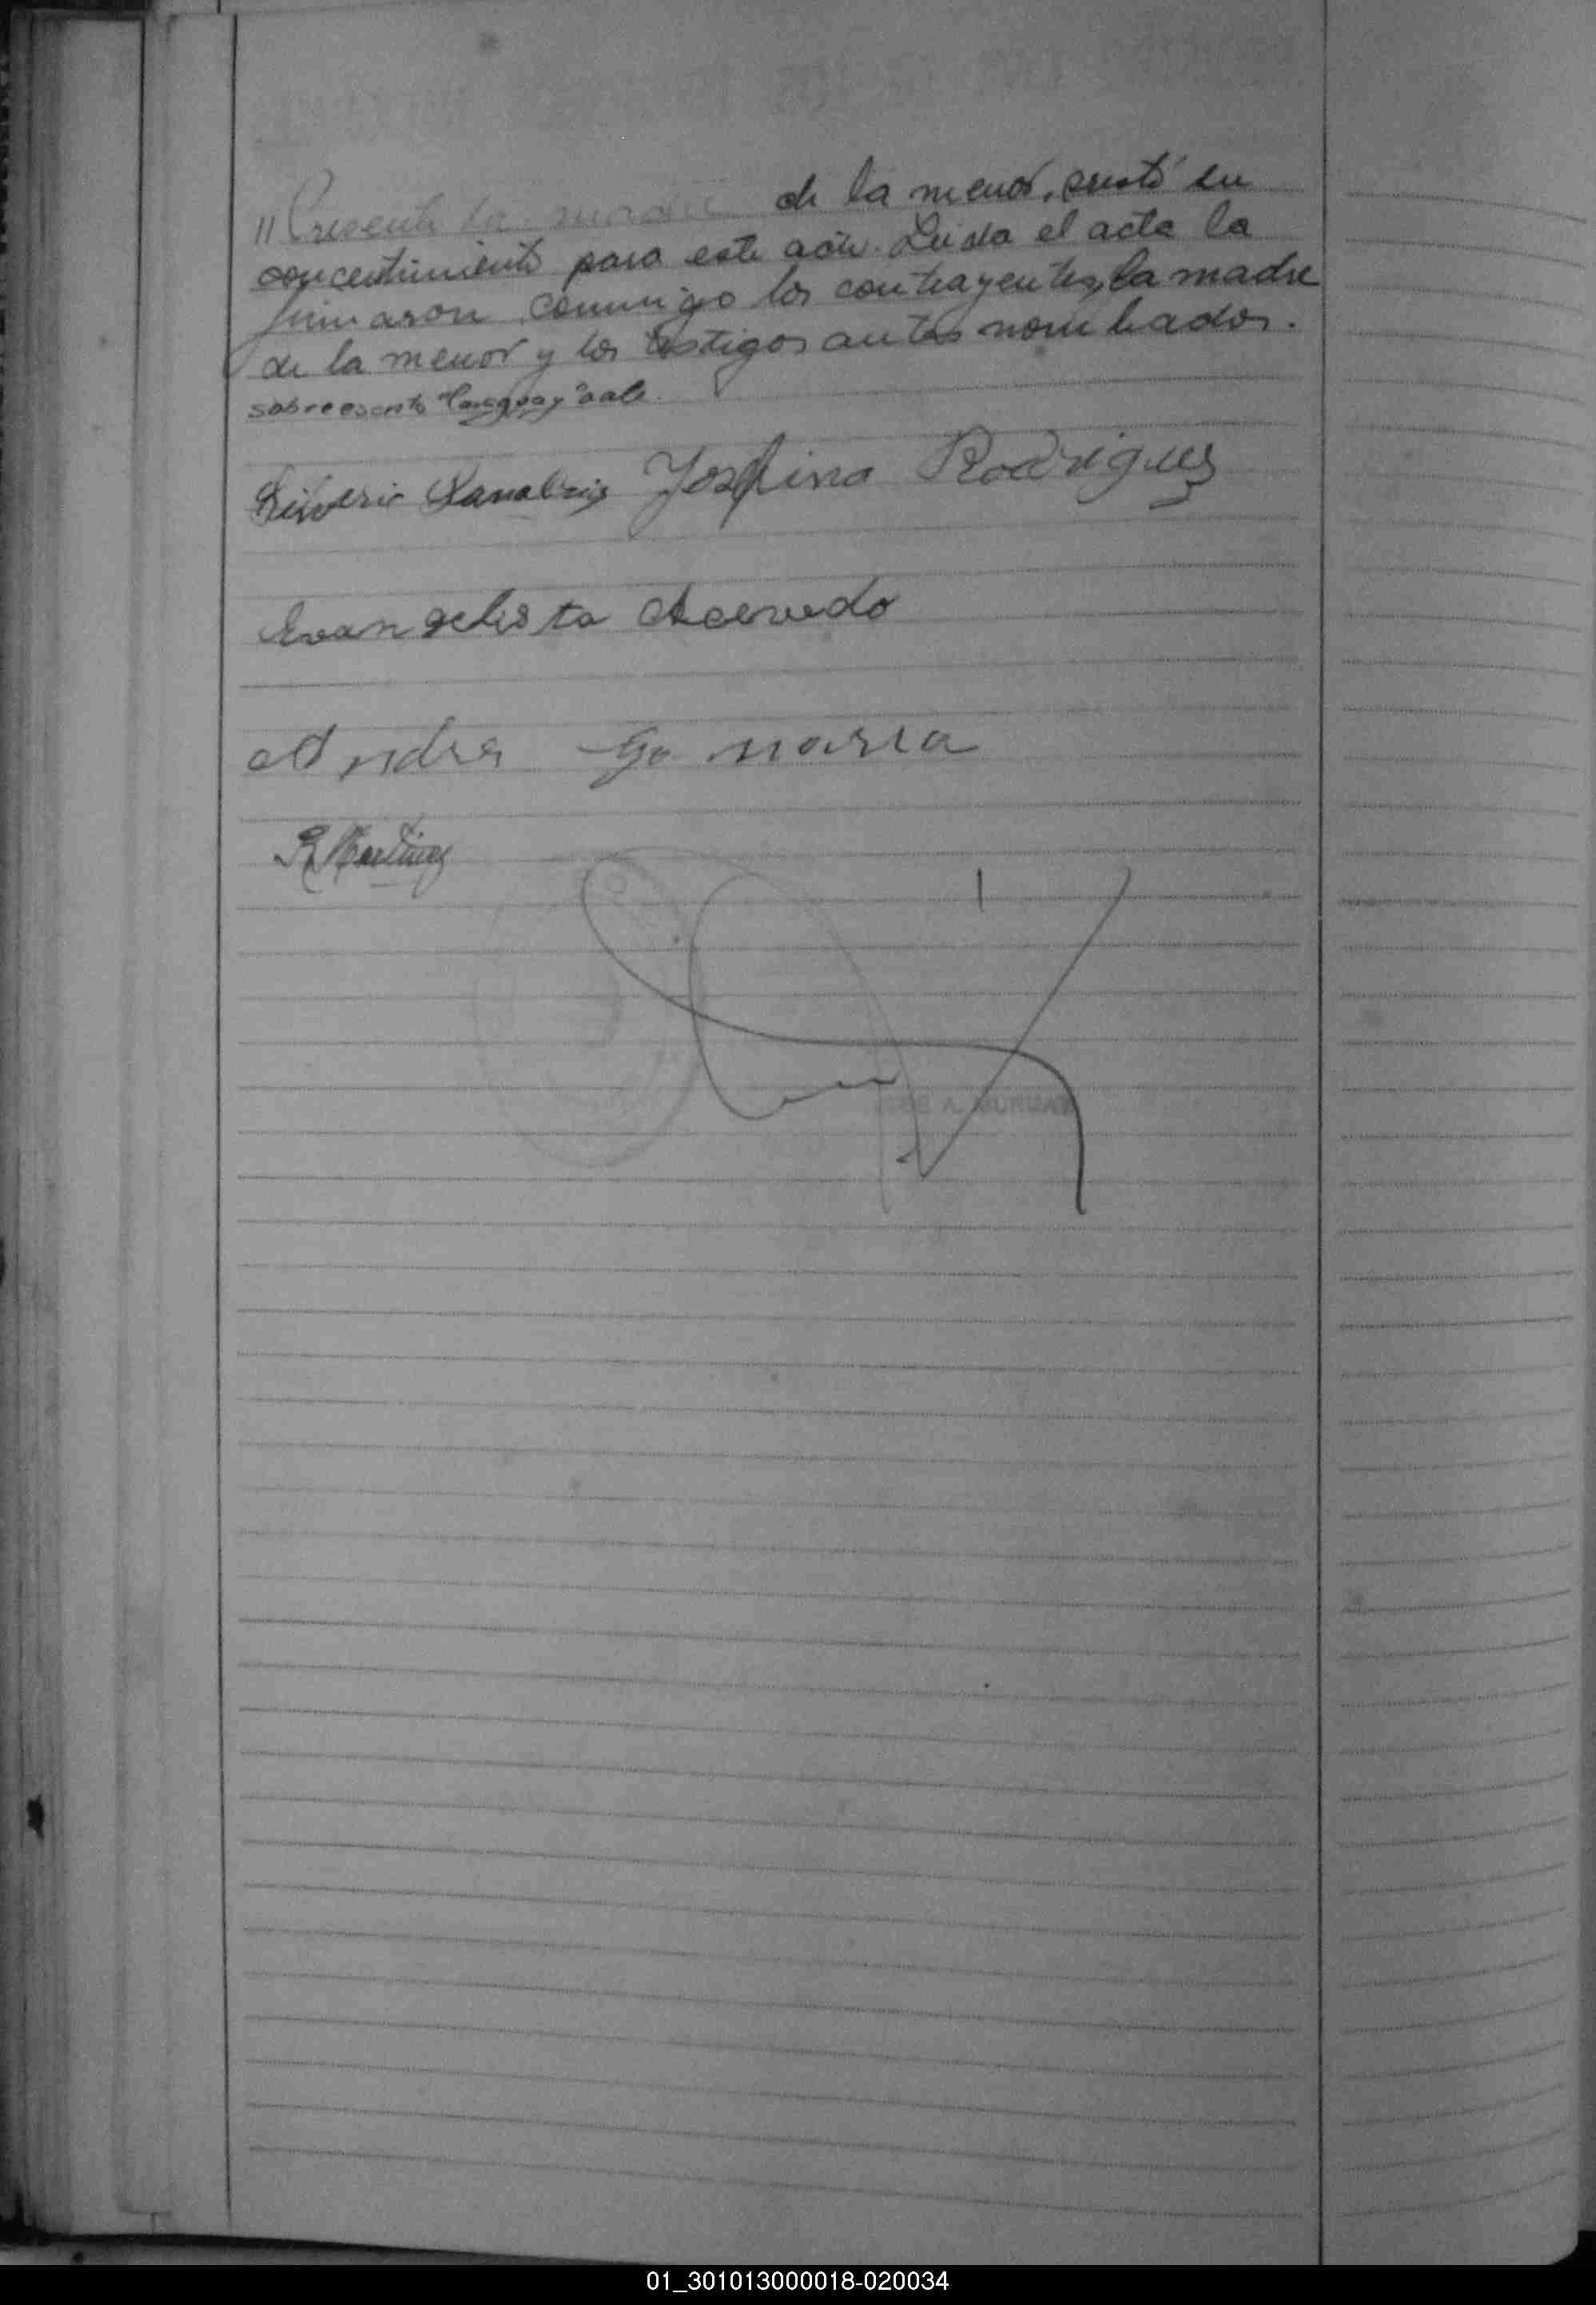 " Presente la madre de la menor, prestó su
concentimiento para este acto. Leida el acta la
firmaron conmigo los contrayentes, la madre
de la menor y los testigos antes nombrados.
sobreescrito "Paraguay" vale.
Silverio Sanabria Josefina Rodriguez
Evangelista Acevedo
R Martinez
01_301013000018-020034